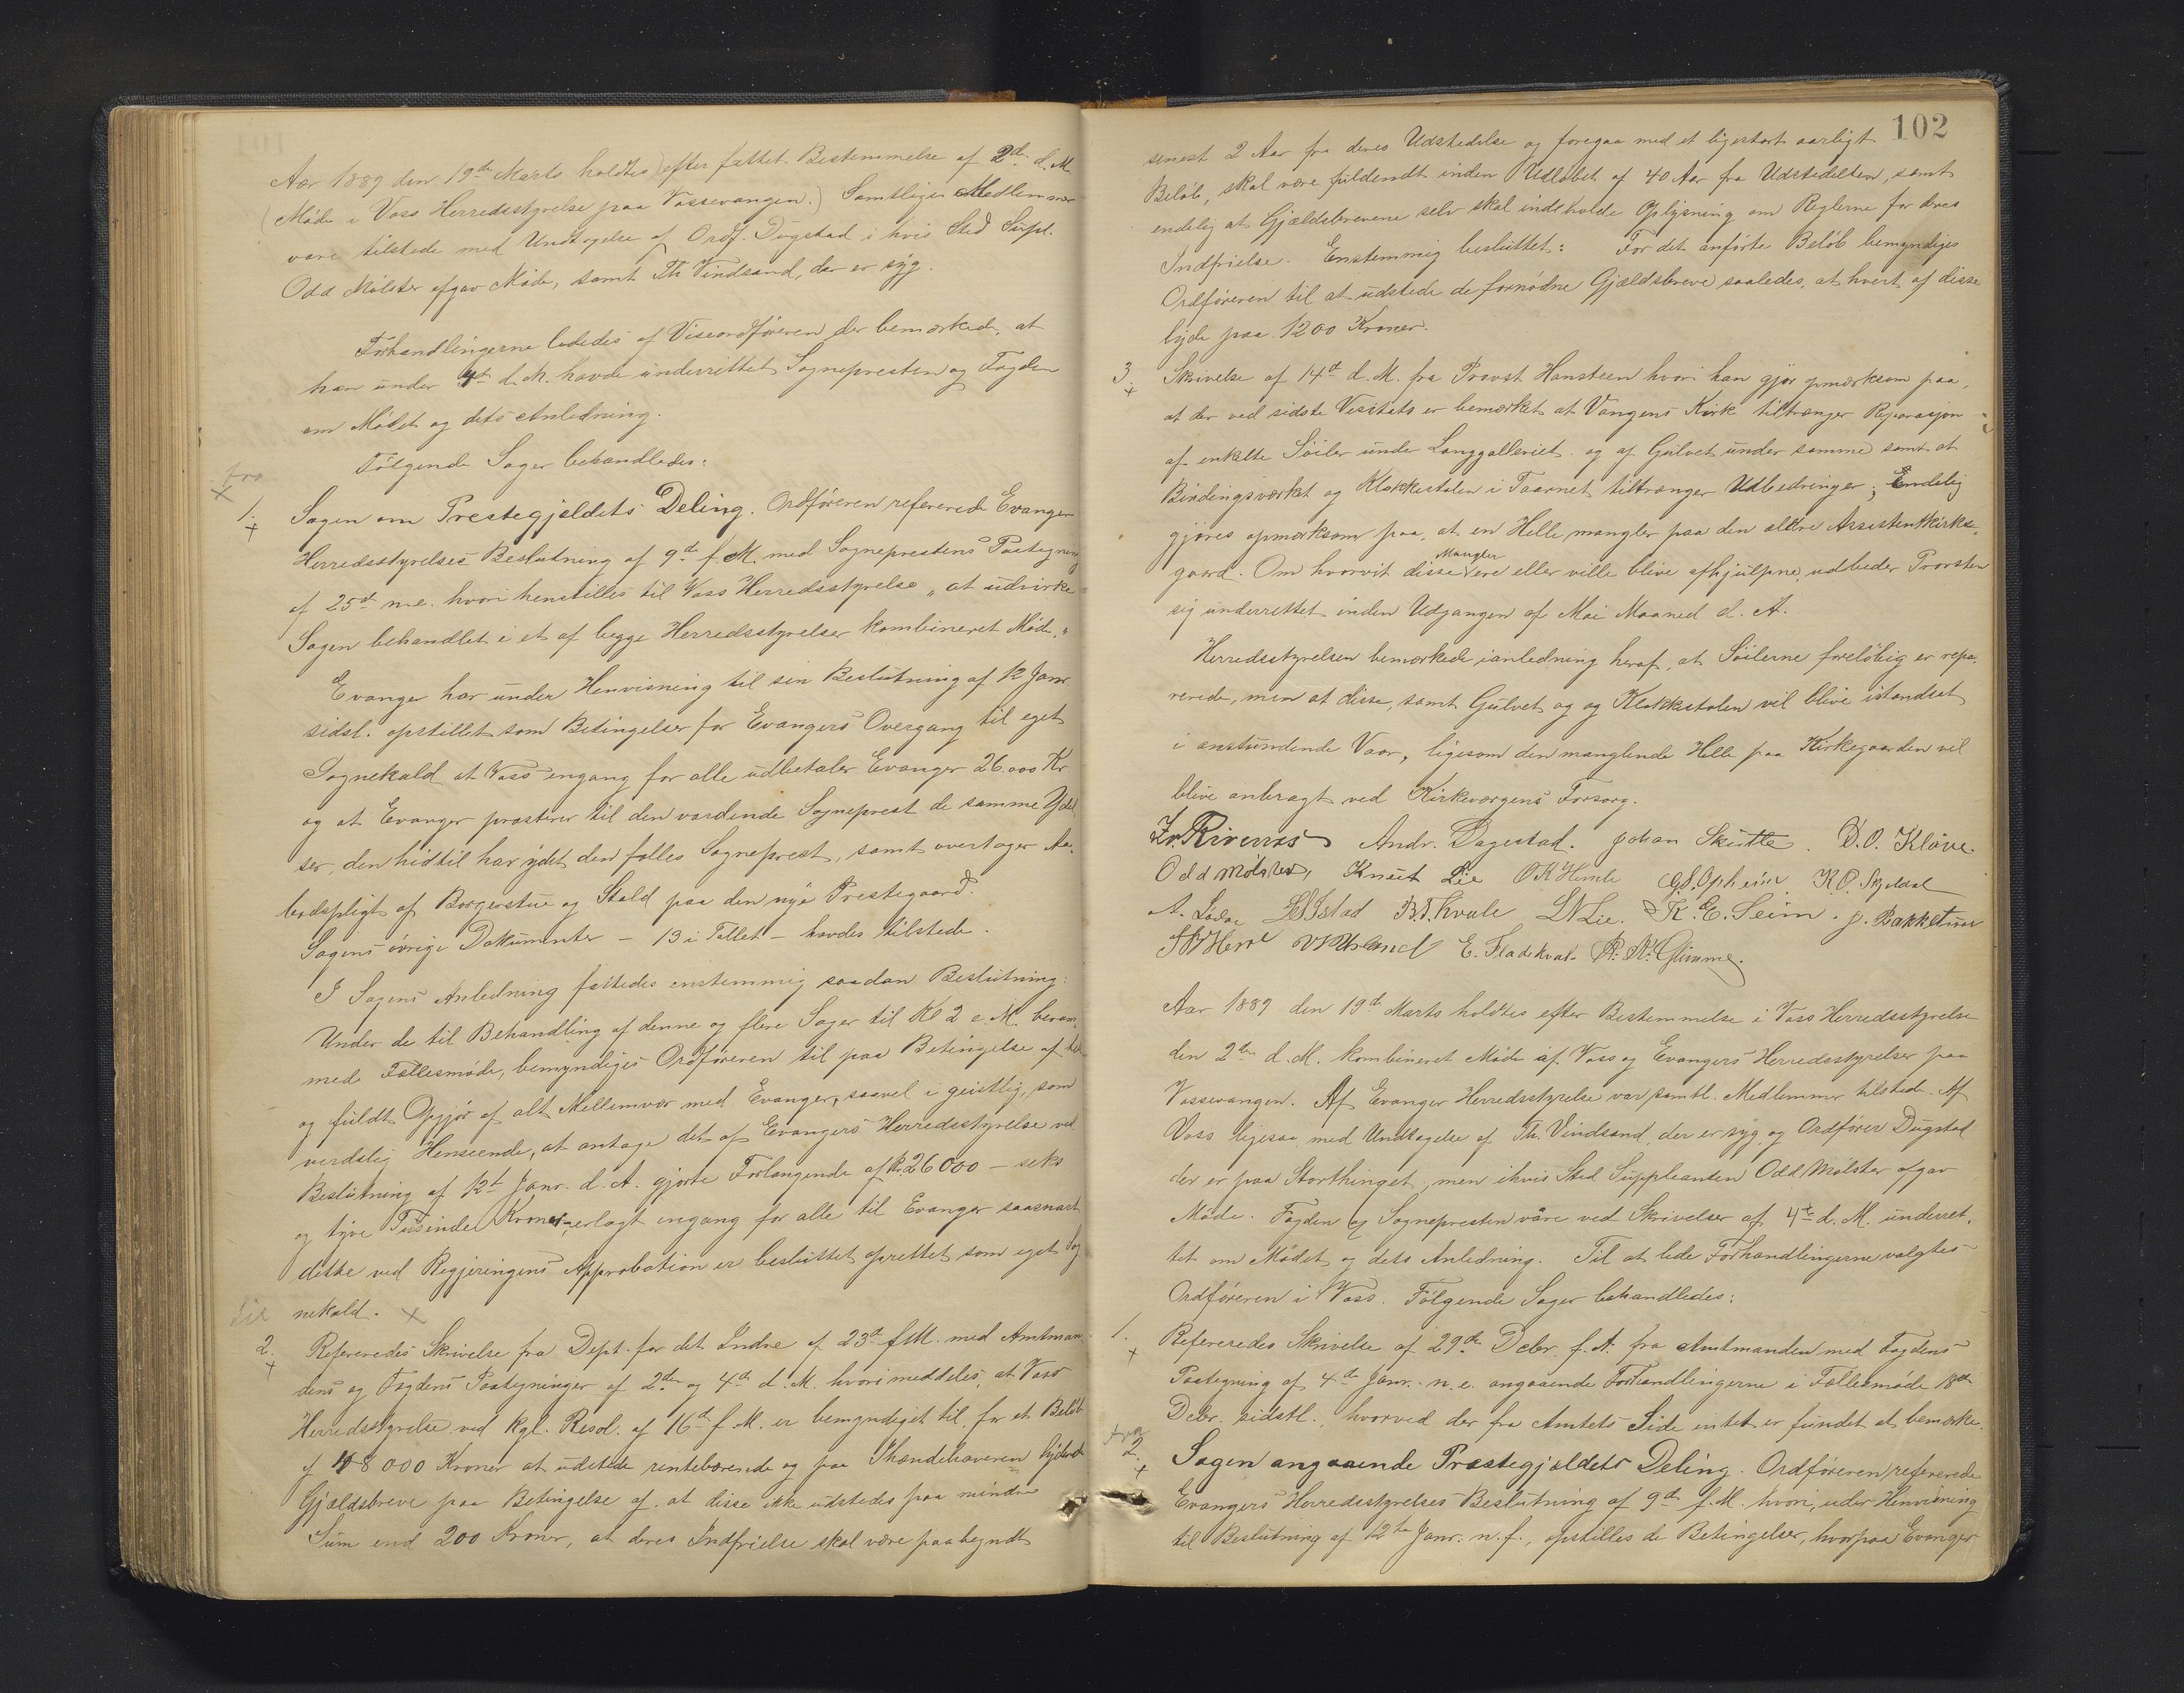 Aar 1889 den 19de Marts holdtes efter fattet Bestemmelse af 2den d. M.
(Møde i Voss Herredsstyrelse paa Vossevangen.) Samtlige Medlemmer
vare tilstede med Undtagelse af Ordf. Dugstad i hvis Sted Supl.
Odd Mølster afgav Møde, samt Th. Vindsand, der er syg.
Forhandlingerne lededes af Viseordføreren der bemærkede, at
han under 4de d. M. havde underrettet Sognepresten og Fogden
om Mødet og dets Anledning.
Følgende Sager behandledes:
fra
1. Sagen om Prestegjeldets Deling. Ordføreren refererede Evanger
Herredsstyrelses Beslutning af 9de f. M. med Sogneprestens Paategning
af 25de n. e. hvori henstilles til Voss Herredsstyrelse "at udvirke
Sagen behandlet i et af begge Herredsstyrelser kombineret Møde."
Evanger har under Henvisning til sin Beslutning af 12 Janr
sidstl. opstillet som Betingelser for Evangers Overgang til eget
Sognekald at Voss engang for alle udbetaler Evanger 26.000 Kr
og at Evanger præsterer til den vordende Sogneprest de samme Ydel
ser, den hidtil har ydet den fælles Sogneprest, samt overtager Aa-
bodspligt af Borgerstue og Stald paa den nye Prestegaard.
Sagens øvrige Dokumenter - 13 i Tallet - havdes tilstede.
I Sagens Anledning fattedes enstemmig saadan Beslutning:
Under de til Behandling af denne og flere Sager til Kl 2 e. M. beram-
mede Fællesmøde, bemyndiges Ordføreren til paa Betingelse af
og fuldt Opgjør af alt Mellemvær med Evanger, saavel i geistlig, som
verdslig Henseende, at antage det af Evangers Herredsstyrelse ved
Beslutning af 12t Janr. d. A. gjorte Forlangende af Kr. 26000 - seks
og tyve Tusinde Kroner, erlagt engang for alle til Evanger saasnart
dette ved Regjeringens Approbation er besluttet oprettet som eget Sog
nekald.
til
2. Refereredes Skrivelse fra Dept. for det Indre af 23de f. M. med Amtman-
dens og Fogdens Paategninger af 2den og 4de d. M. hvori meddeles, at Voss
Herredsstyrelse ved kgl. Resol. af 16de f. M. er bemyndiget til for et Beløb
af 48 000 Kroner at udstede rentebærende og paa Ihændehaveren lydende
Gjældsbreve paa Betingelse af at disse ikke udstedes paa mindre
Sum end 200 Kroner, at deres Indfrielse skal være paabegyndt
102
senest 2 Aar fra deres Udstedelse og foregaa med et ligestort aarligt
Beløb, skal være fuldendt inden Udløbet af 40 Aar fra Udstedelsen, samt
endelig at Gjældsbrevene selv skal indeholde Oplysning om Reglerne for deres
Indfrielse. Enstemmig besluttet: For det anførte Beløb bemyndiges
Ordføreren til at udstede de fornødne Gjældsbreve saaledes, at hvert af disse
lyde paa 1200 Kroner.
3. Skrivelse af 14de d. M. fra Provst Hansteen hvori han gjør opmærksom paa,
at der ved sidste Visitats er bemærket at Vangens Kirke tiltrænger Reparasjon
af enkelte Søiler under Langgalleriet og af Gulvet under samme samt at
Bindingsværket og Klokkestolen i Taarnet tiltrænger Udbedringer; Endelig
gjøres opmærksom paa, at en Helle mangler paa den ældre Assistentkirke-
gaard. Om hvorvit disse Mangler ere eller ville blive afhjulpne, udbeder Provsten
sig underrettet inden Udgangen af Mai Maaned d. A.
Herredsstyrelsen bemærkede i anledning heraf, at Søilerne foreløbig er repa-
rerede, men at disse, samt Gulvet og og Klokkestolen vil blive istandsat
i anstundende Vaar, ligesom den manglende Helle paa Kirkegaarden vil
blive anbragt ved Kirkeværgens Forsorg.
Rivenæs Andr. Dagestad. Johan Skutle. D. O. Kløve.
Odd Mølster, Knut Lie O K Himle G. S. Opheim K. O. Skjeldal
Istad B. T. Kvale L N Lie. K. E. Seim. J. Bakketun
E. Fladekval. R. K. Glimme.
Aar 1889 den 19de Marts holdtes efter Bestemmelse i Voss Herredsstyrelse
den 2den d. M. kombineret Møde af Voss og Evangers Herredsstyrelser paa
Vossevangen. Af Evanger Herredsstyrelse var samtl. Medlemmer tilstede. Af
Voss ligesaa med Undtagelse af Th. Vindsand, der er syg og Ordfører Dugstad
der er paa Storthinget, men i hvis Sted Suppleanten Odd Mølster afgav
Møde. Fogden og Sognepresten våre ved Skrivelser af 4de d. M. underret-
tet om Mødet og dets Anledning. Til at lede Forhandlingerne valgtes
Ordføreren i Voss. Følgende Sager behandledes:
1. Refereredes Skrivelse af 29de Debr. f. A. fra Amtmanden med Fogdens
Paategning af 4de Janr. n. e. angaaende Forhandlingerne i Fællesmøde 18de
Debr. sidstl., hvorved der fra Amtets Side intet er fundet at bemærke.
fra
2. Sagen angaaende Præstegjældets Deling. Ordføreren refererede
Evangers Herredsstyrelses Beslutning af 9de f. M. hvori, under Henvisning
til Beslutning af 12te Janr. n. f., opstilles de Betingelser, hvorpaa Evanger